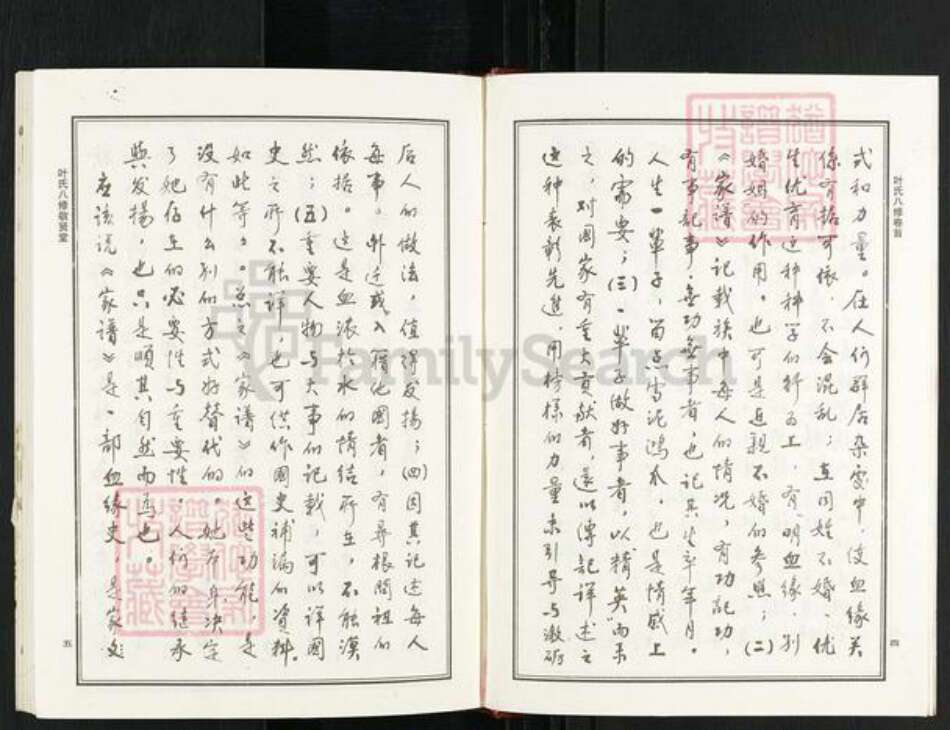 叶氏八修卷首
四
式和力量。在人们群居杂处中,使血缘关
係有据可依,不会混乱;在同姓不婚、优
生优育这种科学的行为上,有明血缘、别
婚姻的作用。也可是近親不婚的参照;(二)
《家谱》记载族中每人的情况,有功記功,
有事記事,無功無事者,也记其生卒年月。
人生一輩子,留点雪泥鴻爪,也是情感上
的需要;(三)一辈子做好事者,以精英而录
之,对国家有重大贡献者,遂以傳記详述之
这种表彰先進,用榜樣的力量来引导与激励
后人的做法,值得发揚;(四)因其记述每人
每事。外迁或入籍他国者,有尋根問祖的
依据。这是血浓於水的情结所在,不能漠
然;(五)重要人物与大事的记载,可以详国
史之所不能详,也可供作国史補漏的资料。
如此等等。总之《家谱》的这些功能,是
没有什么别的方式好替代的。她本身决定
了她存在的必要性与重要性。人们的继承
與发揚,也只是順其自然而为也。
应该说《家谱》是一部血缘史,是家史
叶氏八修敬贤堂
五
FamilySearch